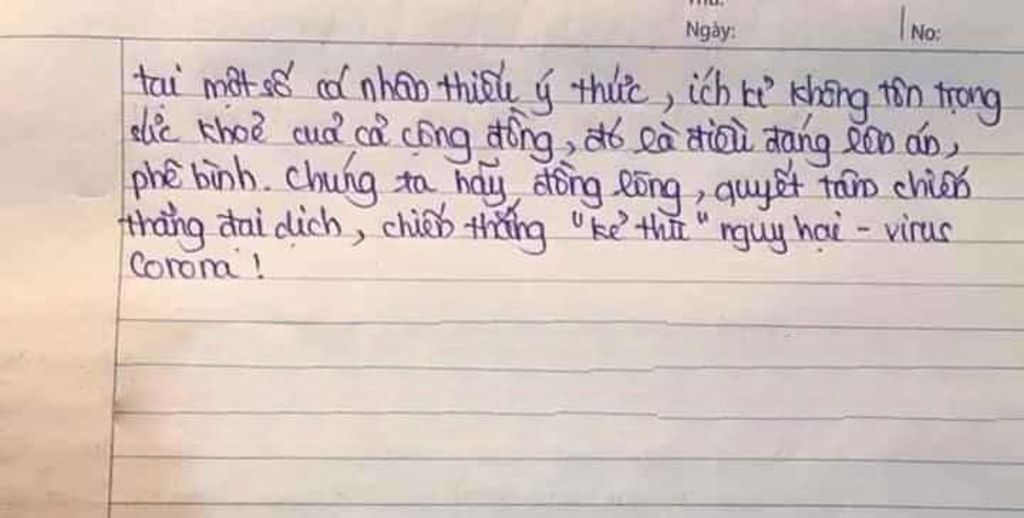 Ngày: No:
tại một số cá nhân thiếu ý thức, ích kỉ không tôn trọng
sức khoẻ cuả cả cộng đồng, đó là điều đáng lên án,
phê bình. Chúng ta hãy đồng lòng, quyết tâm chiến
thắng đại dịch, chiến thắng "kẻ thù" nguy hại - virus
Corona!